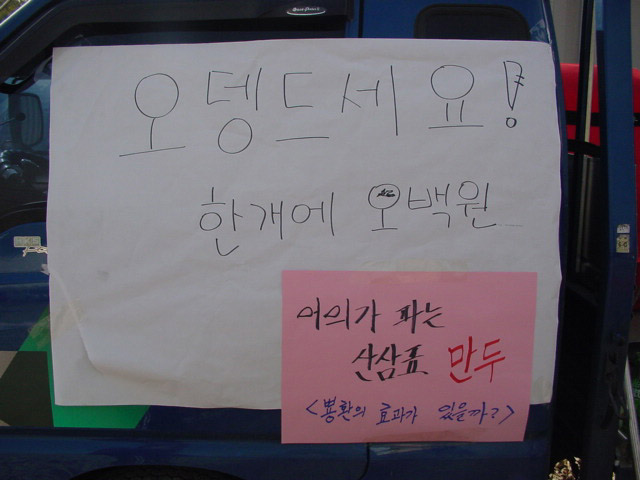 오뎅드세요!
한개에 오백원
어의가 파는
산삼표 만두
<뿅환의 효과가 있을까?>